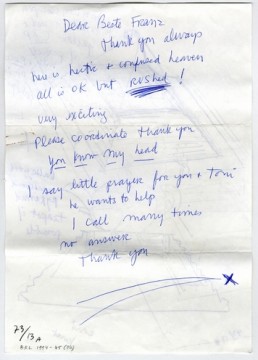 Dear Beste Franz
thank you always
here is hectic + confused heaven
all is OK but RUSHED !
very exciting
Please coordinate thank you
you know my head
I say little prayer for you + Toni
he wants to help
I call many times
no answer
thank you
X
73/13 A